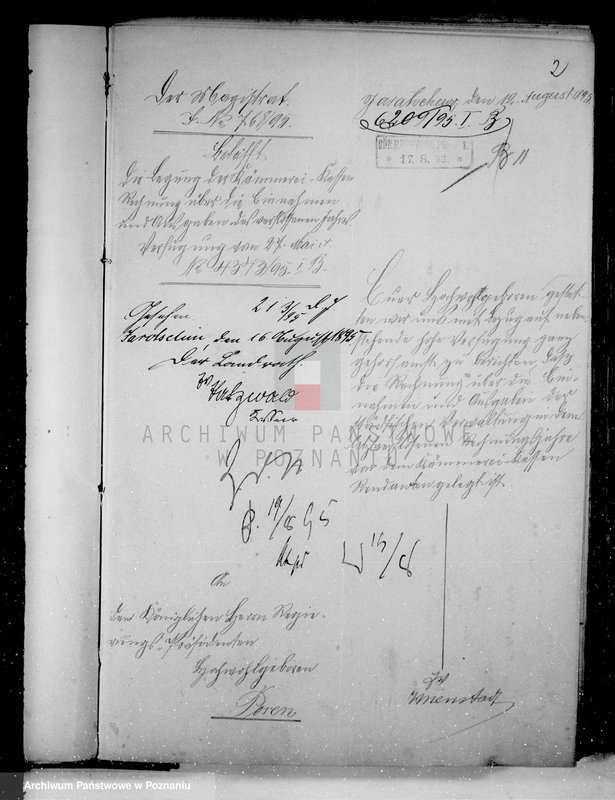 2
Der Magistrat.
J. № 7699.
Betrifft
die Legung der Kämmerei-Kassen
Rechnung über die Einnahmen
und Ausgaben des verflossenen Jahres.
Verfügung vom 27. Mai
№ 4373/95. I B.
den 12. August 1895
6209/95. I. B
17. 8. 95.
Gesehen
Jarotschin, den 16 August 1895
Der Landrath.
Euer Hochwohlgeboren gestat-
ten wir uns mit Bezug auf neben-
stehende hohe Verfügung ganz
gehorsamst zu berichten, daß
die Rechnung über die Ein-
nahmen und Ausgaben der
städtischen Verwaltung in dem
verflossenen Rechnungsjahre
von dem Kämmerei-Kassen
Rendanten gelegt ist.
19/8 95
19/8
An
den Königlichen Herrn Regie-
rungs-Präsidenten
Hochwohlgeboren
Posen
ARCHIWUM PAŃSTWOWE
W POZNANIU
Archiwum Państwowe w Poznaniu